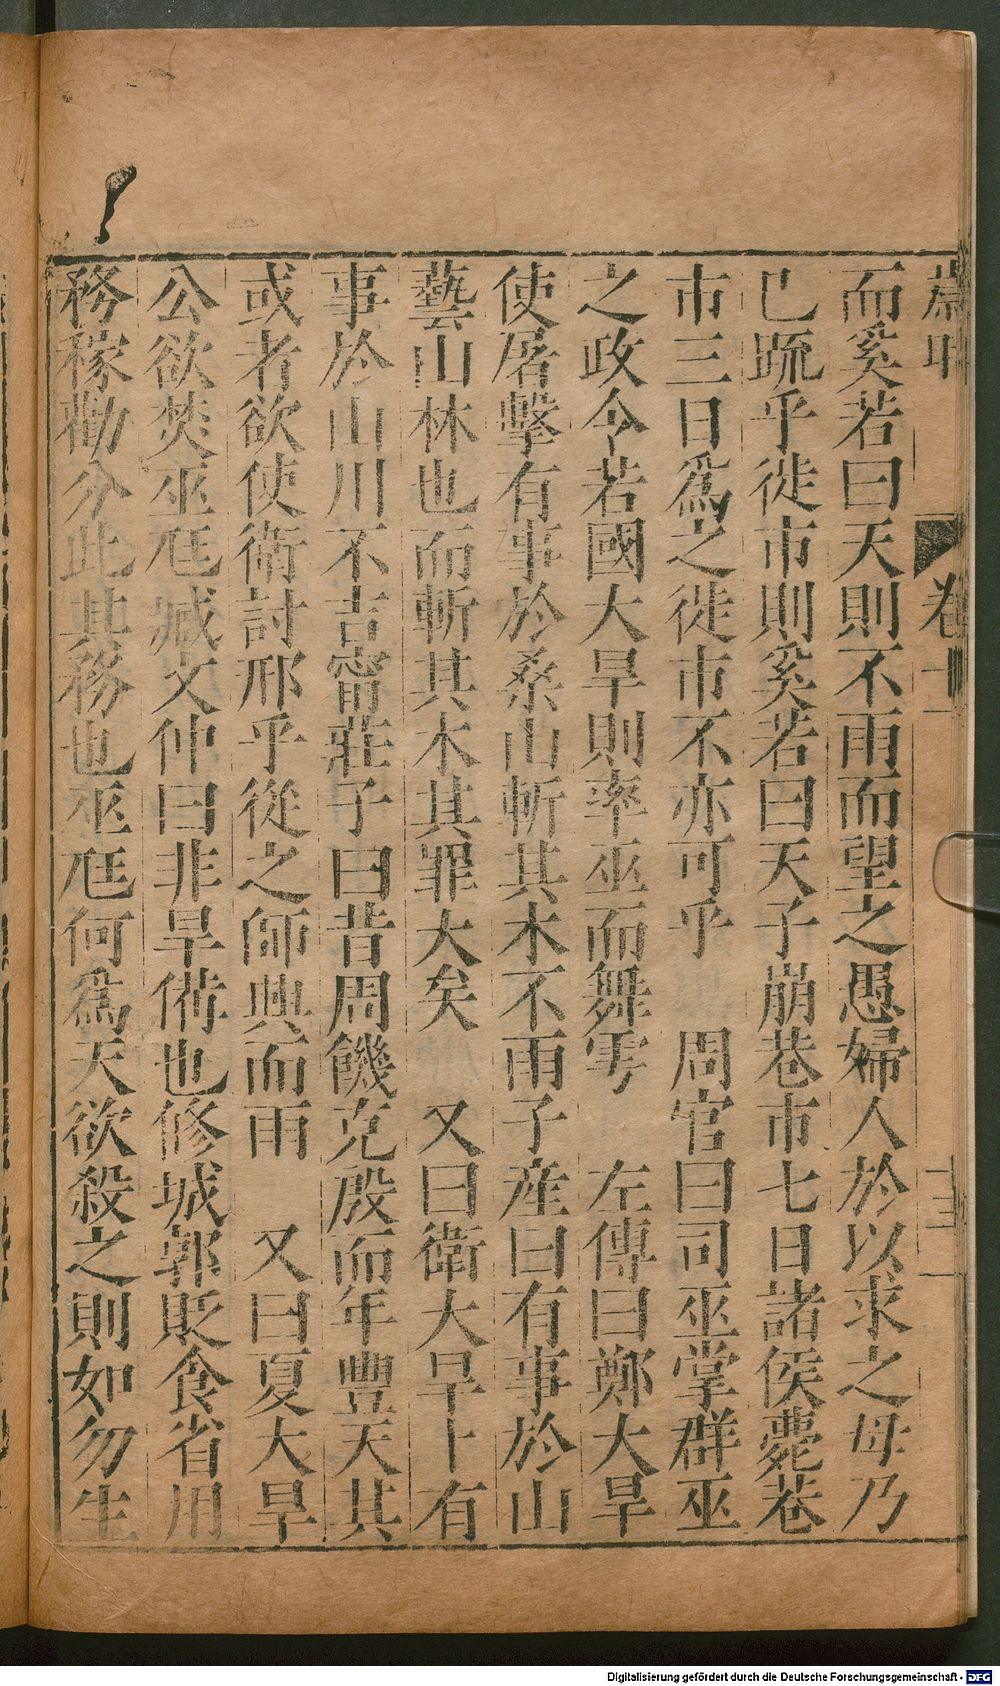 卷十
而奚若曰天則不雨而望之愚婦人於以求之毋乃
已疏乎徙市則奚若曰天子崩巷市七日諸侯薨巷
市三日爲之徙市不亦可乎　周官曰司巫掌群巫
之政令若國大旱則率巫而舞雩　左傳曰鄭大旱
使屠擊有事於桑山斬其木不雨子產曰有事於山
藝山林也而斬其木其罪大矣　又曰衛大旱卜有
事於山川不吉甯莊子曰昔周饑克殷而年豐天其
或者欲使衛討邢乎從之師興而雨　又曰夏大旱
公欲焚巫尫臧文仲曰非旱備也修城郭貶食省用
務穡勸分此其務也巫尫何爲天欲殺之則如勿生
Digitalisierung gefördert durch die Deutsche Forschungsgemeinschaft - DFG